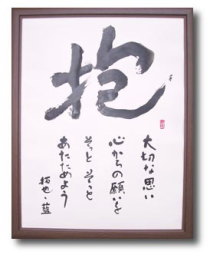 抱
大切な思い
心からの願いを
そっと そっと
あたためよう
拓也・藍